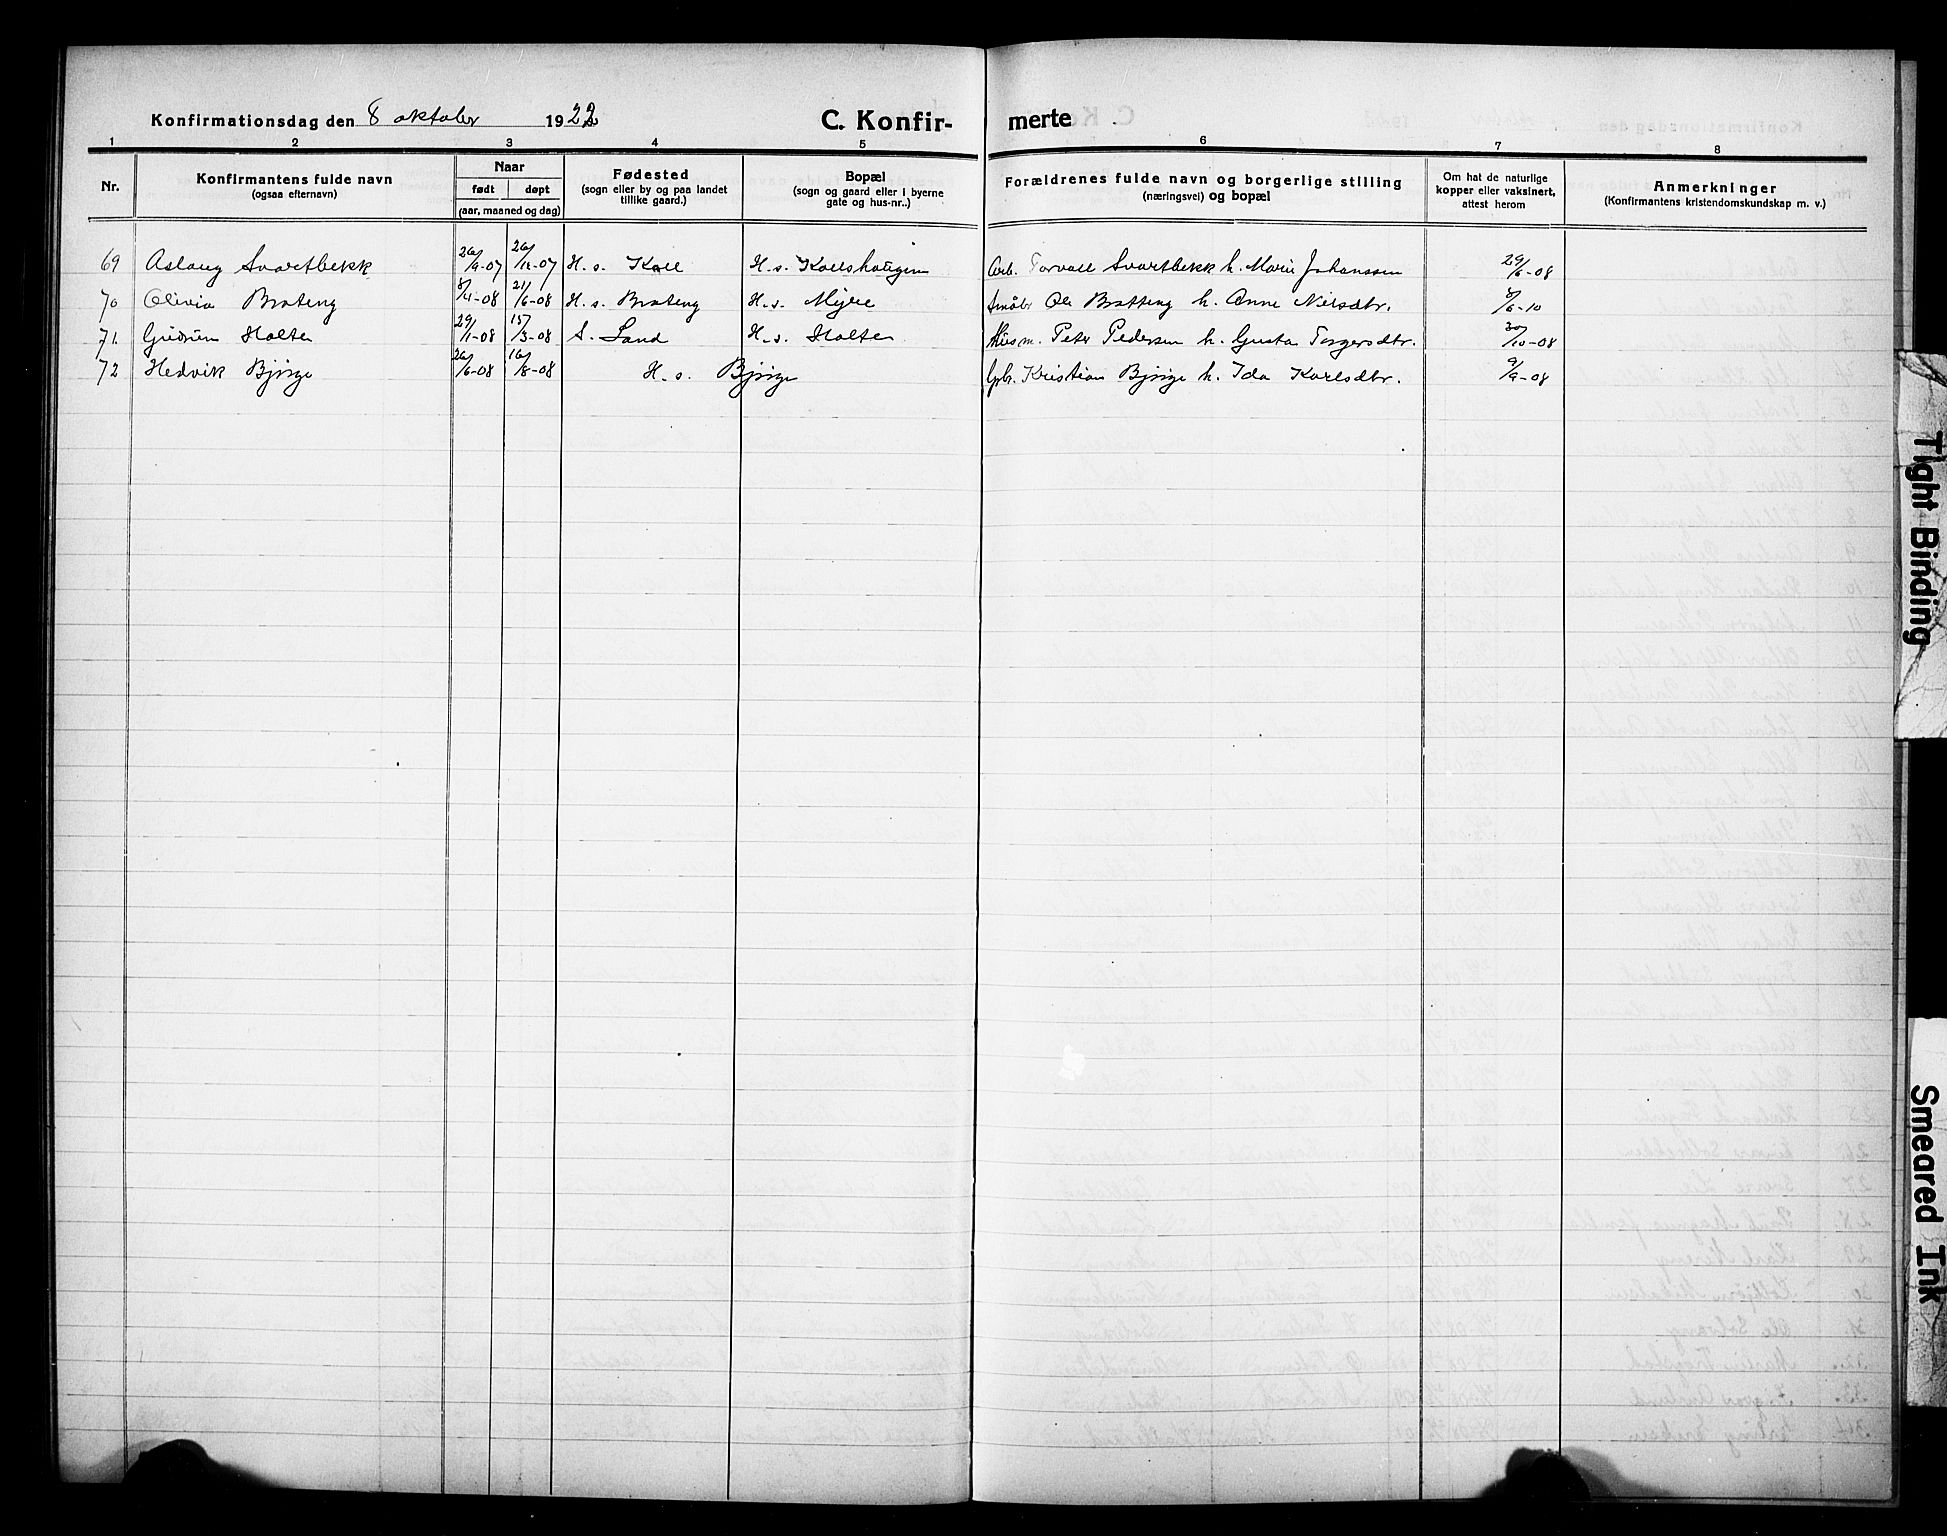 Konfirmationsdag den 8 oktober 1922 C. Konfirmerte
1 2 3 4 5 6 7 8
Nr. Konfirmantens fulde navn (ogsaa efternavn) Naar født døpt (aar, maaned og dag) Fødested (sogn eller by og paa landet tillike gaard.) Bopæl (sogn og gaard eller i byerne gate og hus-nr..) Forældrenes fulde navn og borgerlige stilling (næringsvei) og bopæl Om hat de naturlige kopper eller vaksinert, attest herom Anmerkninger (Konfirmantens kristendomskundskap m. v.)
69 Aslaug Svartbekk 26/9-07 26/12-07 H. s. Koll H. s. Kollshaugen Arb. Torvall Svartbekk h. Marie Johanssen 29/6-08
70 Olivia Brateng 8/4-08 21/6-08 H. s. Brateng H. s. Myre Småbr Ole Bratteng h. Anne Nielsdtr. /6-10
71. Gudrun Holter 29/1-08 15/3-08 S. Land H. s. Holter Husm. Peter Pedersen h. Gusta Torgersdtr. 30/10-08
72 Hedvik Bjørge 26/6-08 16/8-08 H. s. Bjørge Gbr. Kristian Bjørge h. Ida Karlsdtr. 9/9-08
Tight Binding
Smeared Ink